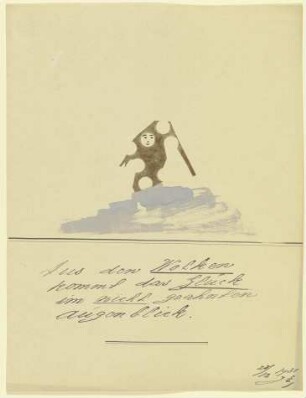 Aus den Wolken
kommt das Glück
im nicht geahnten
Augenblick.